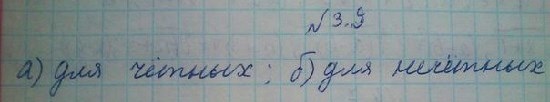 №3.9
а) для чётных; б) для нечётных